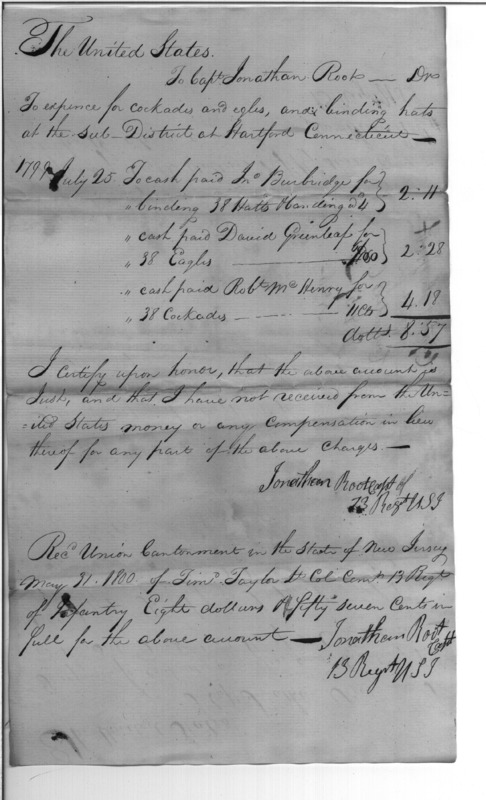 The United States.
To Capt Jonathan Root — Dr
To expence for cockades and egles, and binding hats
at the sub-District at Hartford Connecticut —
1799 July 25 To cash paid Jno Burbridge for
" binding 38 Hatts 2: 11
" cash paid David Greenleaf for
" 38 Eagles — 2: 28
" cash paid Robt McHenry for
" 38 Cockades — 11 Cts 4. 18
dolls. 8: 57
I certify upon honor, that the above account is
Just, and that I have not received from the Un=
=ited States money or any compensation in lieu
thereof for any part of the above charges. —
Jonathan Root Capt of
13 Regt USI
Recd Union Cantonment in the State of New Jersey
May 21. 1800 of Timo Taylor Lt Col Comt 13 Regt
of Infantry Eight dollars & fifty seven Cents in
full for the above account — Jonathan Root
Capt
13 Regt USI